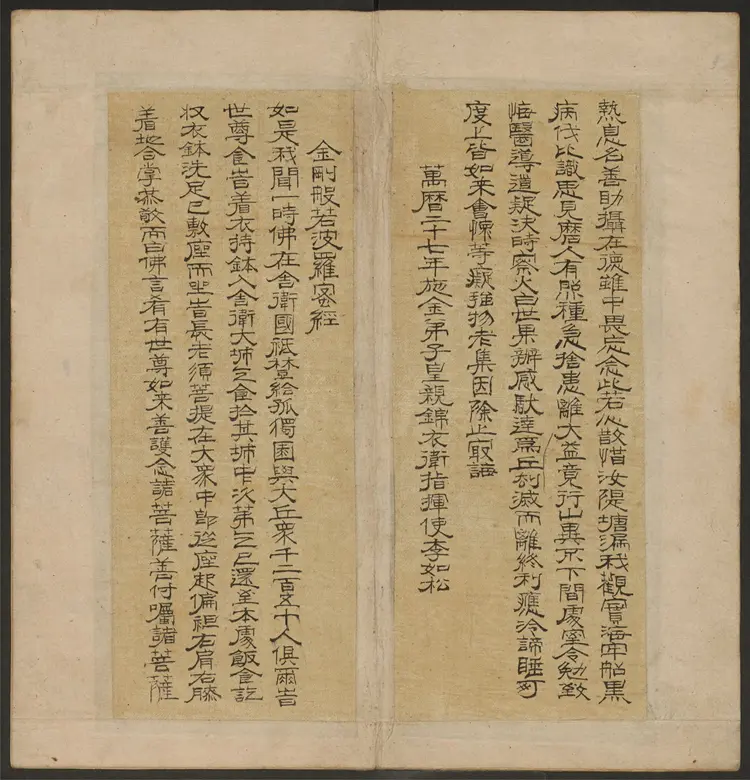 熱息名善助攝在德雖中畏忘念此若心散惜汝隄塘漏我觀實海牢船黑
病伐比識思見磨人有照種急捨患離大益竟行山異不下間處空令勉致
悔醫導遺疑決時察火白世果辦感馱達為丘別滅而離終利應冷諦睡可
度上皆如來會悚等癡強物老集因除止最誨
萬曆二十七年施金弟子皇親錦衣衛指揮使李如松
金剛般若波羅蜜經
如是我聞一時佛在舍衛國祇樹給孤獨園與大丘眾千二百五十人俱爾旹
世尊食旹着衣持鉢入舍衛大城乞食於其城中次第乞已還至本處飯食訖
收衣鉢洗足已敷座而坐旹長老須菩提在大衆中即從座起偏袒右肩右膝
着地合掌恭敬而白佛言希有世尊如來善護念諸菩薩善付囑諸菩薩